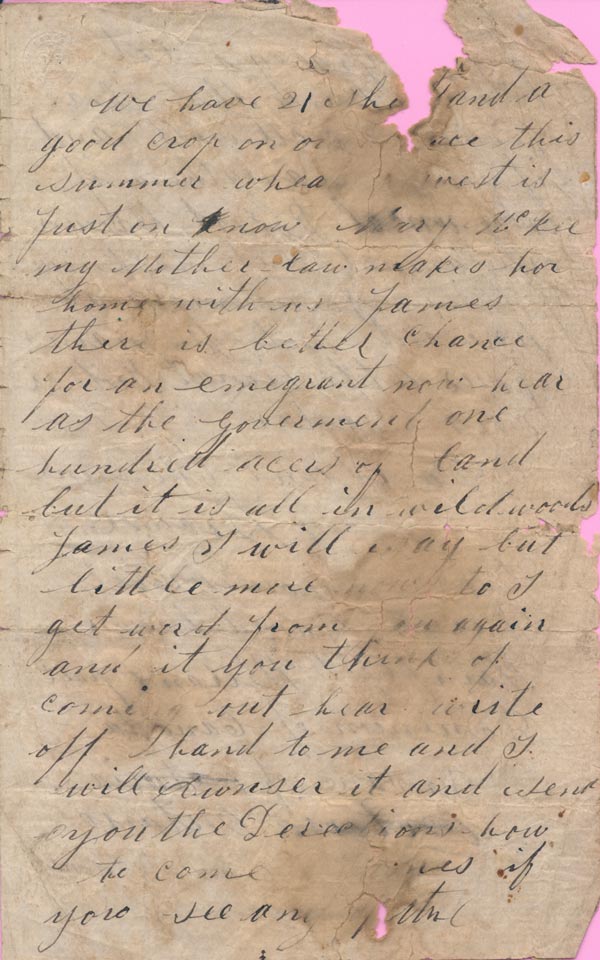 We have 21 and a
good crop on this
summer is
just on know McKee
my Mother law makes hor
home with us James
thire is better chance
for an emegrant now hear
as the goverment one
hundrell acers of land
but it is all in wildwoods
James I will but
little more to I
get word from again
and it you think of
coming out hear write
off hand to me and I
will awnser it and send
you the Derections how
to come if
you see any of the